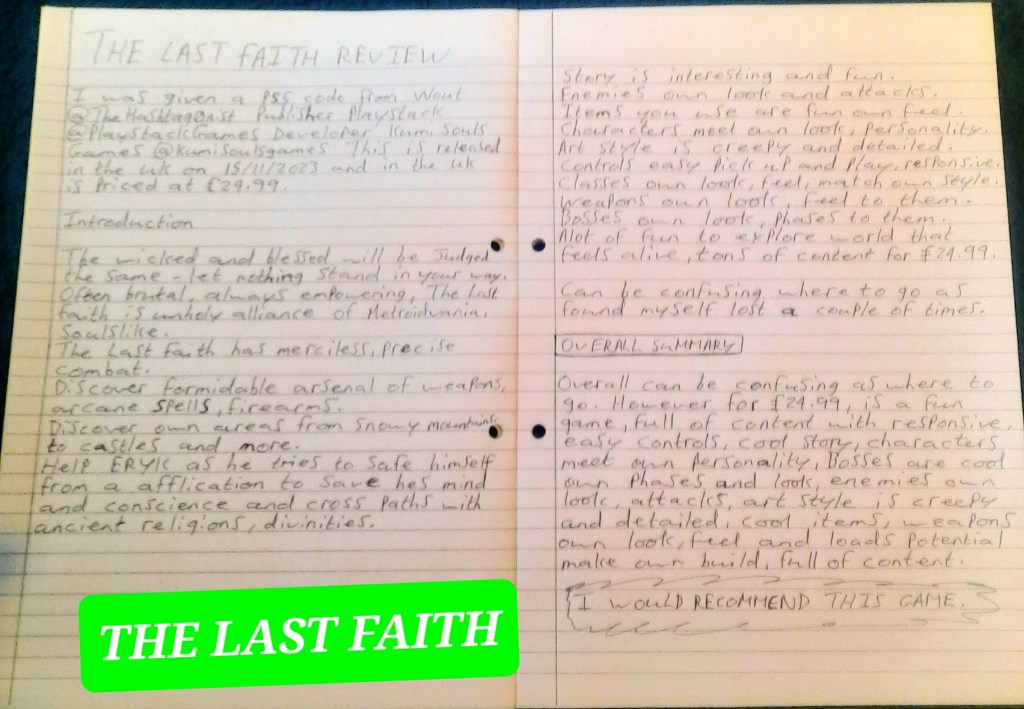 THE LAST FAITH REVIEW
I was given a PS5 code from Wout
@TheHashtagoast Publisher Playstack
@PlaystackGames Developer Kumi Souls
Games @kumisoulsgames This is released
in the UK on 15/11/2023 and in the UK
is priced at £24.99.
Introduction
The wicked and blessed will be Judged
the same - let nothing stand in your way.
Often brutal, always empowering, The last
faith is unholy alliance of Metroidvania,
Soulslike.
The Last Faith has merciless, precise
combat.
Discover formidable arsenal of weapons,
arcane spells, firearms.
Discover own areas from snowy mountains
to castles and more.
Help ERYK as he tries to safe himself
from a afflication to save hes mind
and conscience and cross paths with
ancient religions, divinities.
Story is interesting and fun.
Enemies own look and attacks.
Items you use are fun own feel.
Characters meet own look, personality.
Art style is creepy and detailed.
Controls easy pick up and play, responsive.
Classes own look, feel, match own style.
Weapons own look, feel to them.
Bosses own look, phases to them.
Alot of fun to explore world that
feels alive, tons of content for £24.99.
Can be confusing where to go as
found myself lost a couple of times.
OVERALL SUMMARY
Overall can be confusing as where to
go. However for £24.99, is a fun
game, full of content with responsive,
easy controls, cool story, characters
meet own personality, Bosses are cool
own phases and look, enemies own
look, attacks, art style is creepy
and detailed, cool items, weapons
own look, feel and loads potential
make own build, full of content.
I WOULD RECOMMEND THIS GAME.
THE LAST FAITH